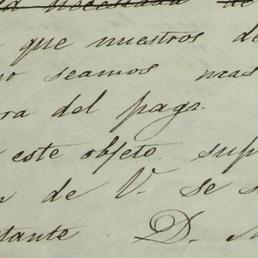 la necesidad de
que nuestros de
no seamos mas
ra del pago.
este objeto sup
de V. se s
tante D.